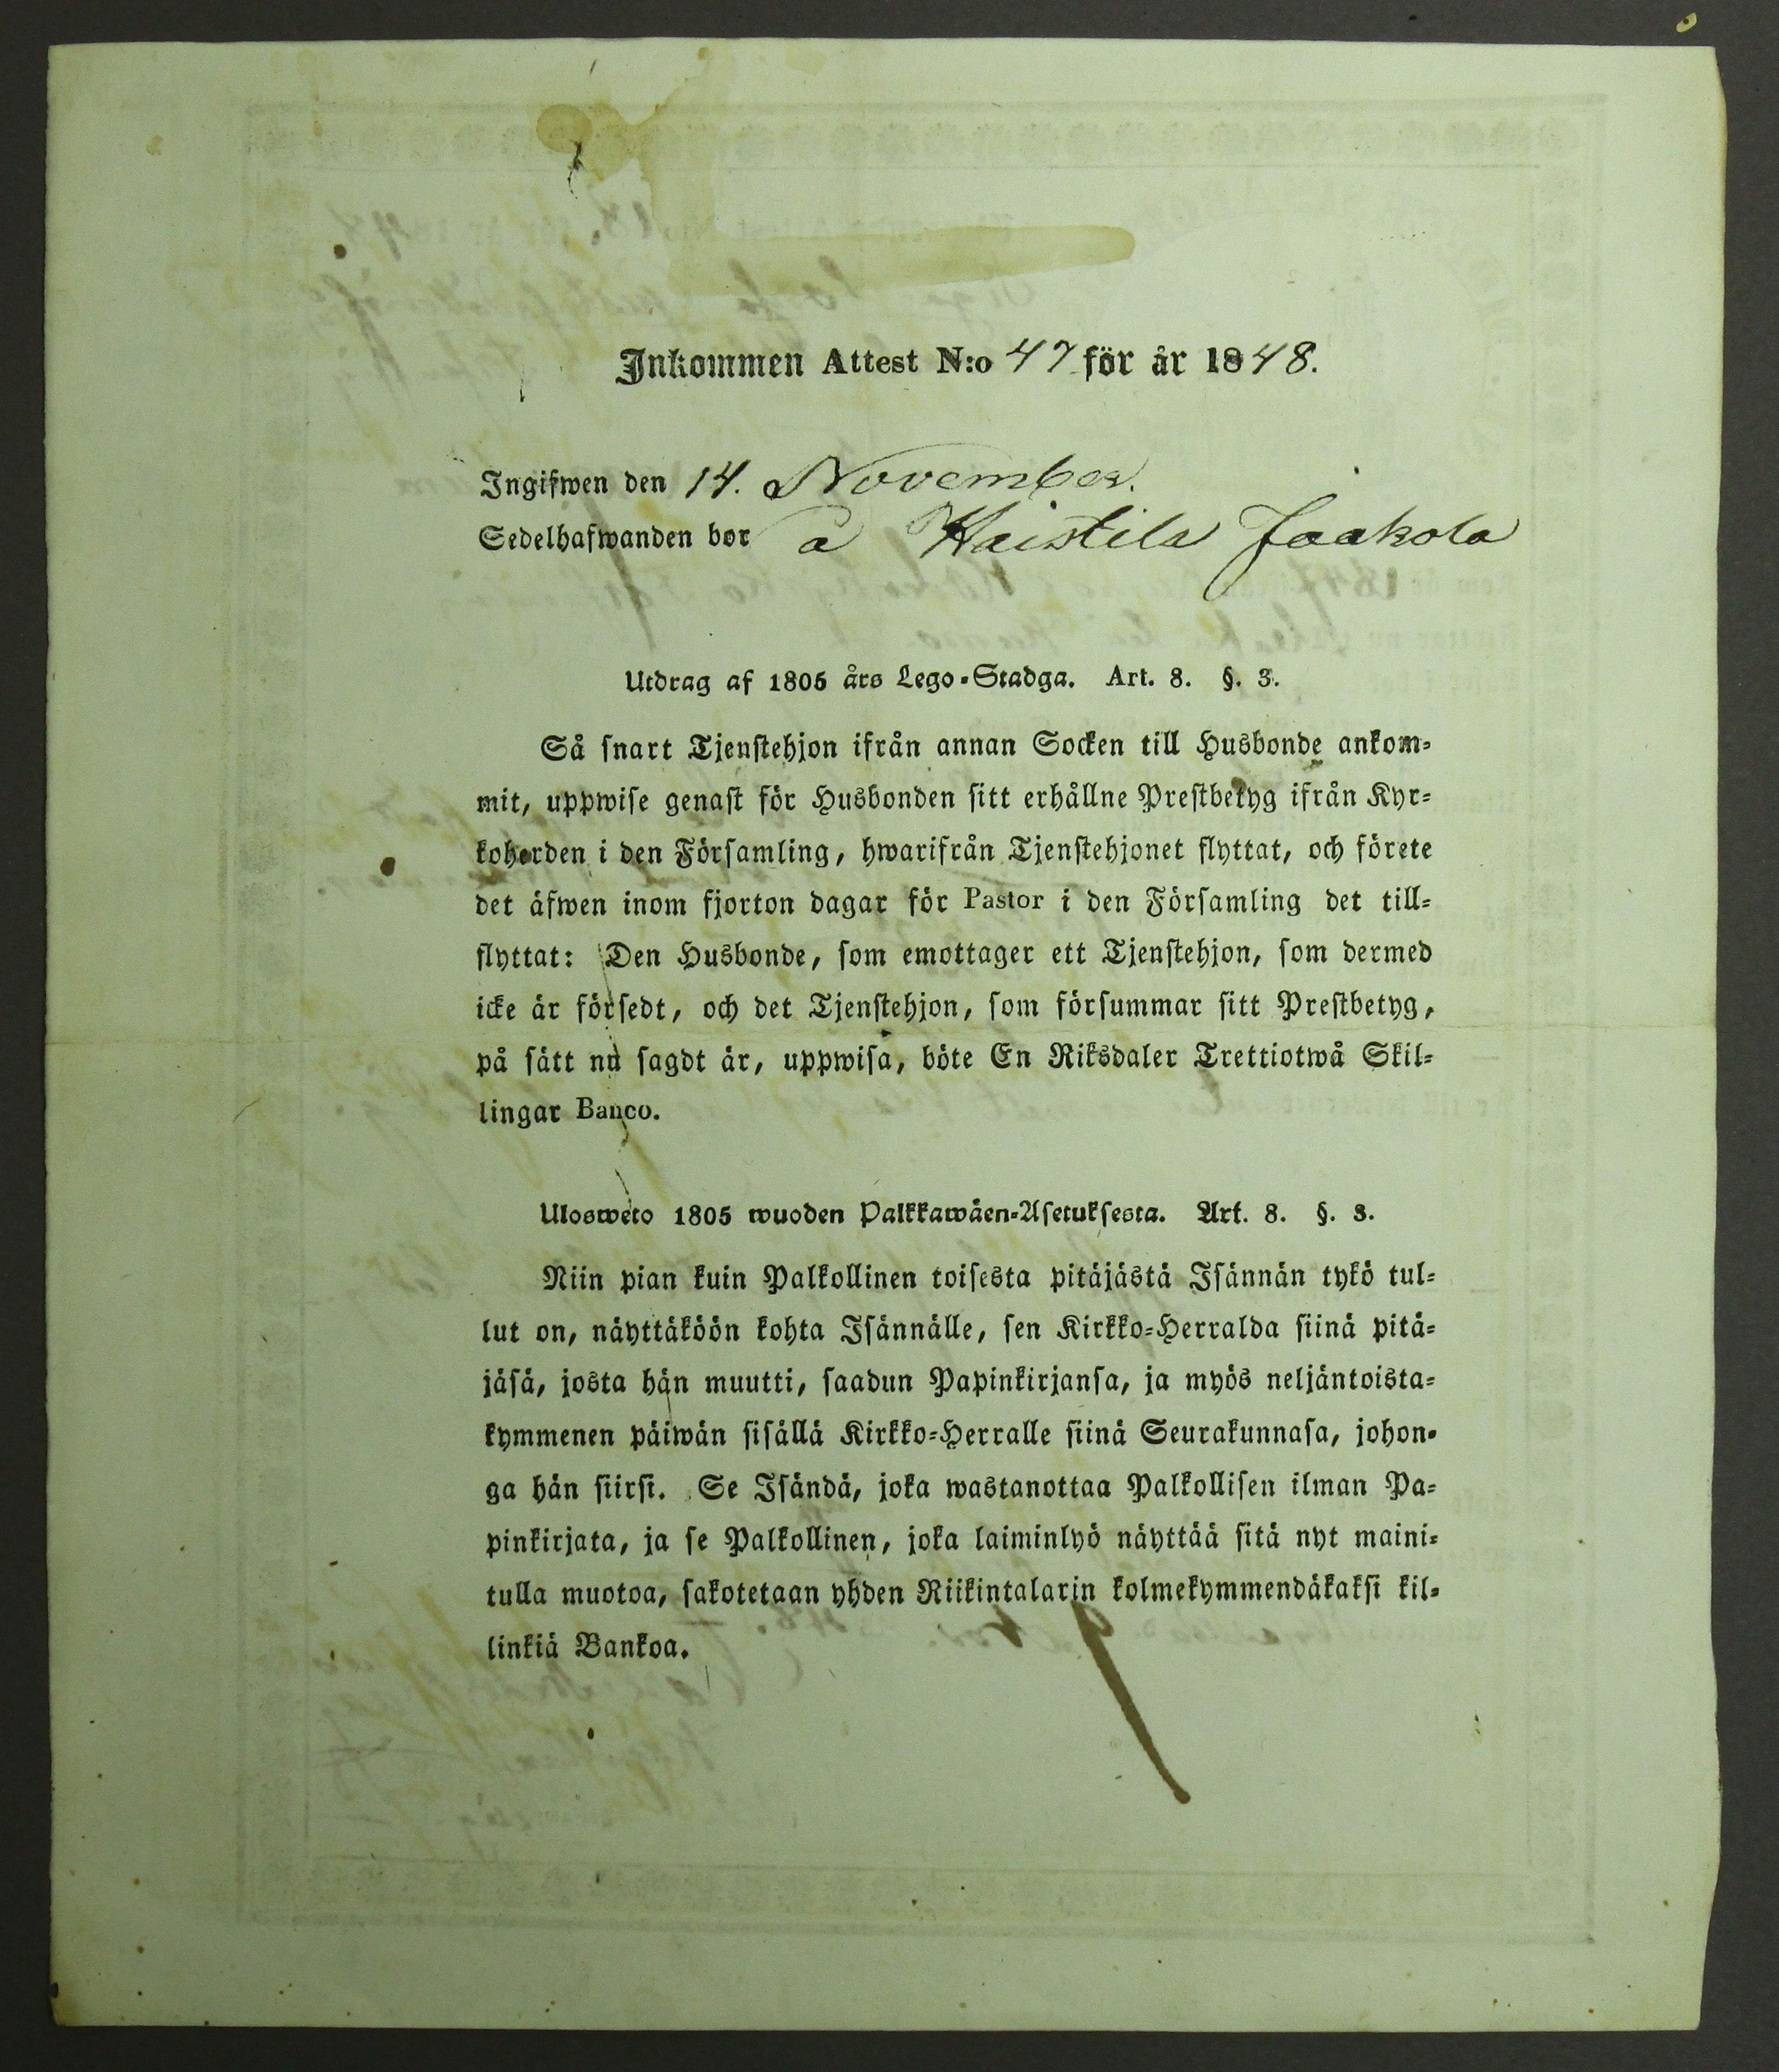 Inkommen Attest N:o 47 för år 1848.
Ingifwen den 14. November.
Sedelhafwanden bor å Haistila Jaakola
Utdrag af 1805 års Lego-Stadga. Art. 8. §. 3.
Så snart Tjenstehjon ifrån annan Socken till Husbonde ankom-
mit, uppwise genast för Husbonden sitt erhållne Prestbetyg ifrån Kyr-
koherden i den Församling, hwarifrån Tjenstehjonet flyttat, och förete
det äfwen inom fjorton dagar för Pastor i den Församling det till-
flyttat: Den Husbonde, som emottager ett Tjenstehjon, som dermed
icke är försedt, och det Tjenstehjon, som försummar sitt Prestbetyg,
på sätt nu sagdt är, uppwisa, böte En Riksdaler Trettiotwå Skil-
lingar Banco.
Ulosweto 1805 wuoden Palkkawäen-Asetuksesta. Art. 8. §. 3.
Niin pian kuin Palkollinen toisesta pitäjästä Isännän tykö tul-
lut on, näyttäköön kohta Isännälle, sen Kirkko-Herralda siinä pitä-
jäsä, josta hän muutti, saadun Papinkirjansa, ja myös neljäntoista-
kymmenen päiwän sisällä Kirkko-Herralle siinä Seurakunnasa, johon-
ga hän siirsi. Se Isändä, joka wastanottaa Palkollisen ilman Pa-
pinkirjata, ja se Palkollinen, joka laiminlyö näyttää sitä nyt maini-
tulla muotoa, sakotetaan yhden Riikintalarin kolmekymmendäkaksi kil-
linkiä Bankoa.